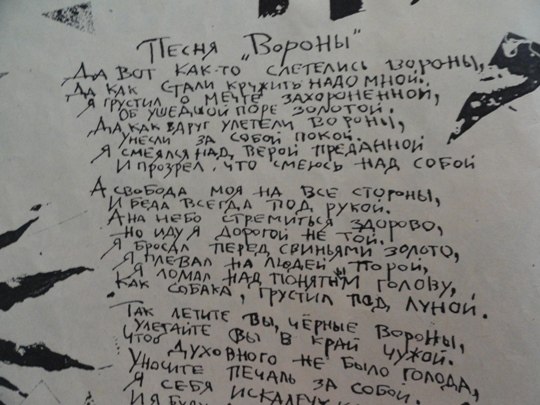 Песня „Вороны"
Да вот как-то слетелись вороны,
Да как стали кружить надо мной.
Я грустил о мечте захороненной,
Об ушедшой поре золотой.
Да как вдруг улетели вороны,
Унесли за собой покой.
Я смеялся над верой преданной
И прозрел, что смеюсь над собой
А свобода моя на все стороны,
И беда всегда под рукой.
А на небо стремиться здорово,
Но иду я дорогой не той.
Я бросал перед свиньями золото,
Я плевал на людей порой,
Я ломал над понятым голову,
Как собака, грустил под луной.
Так летите вы, чёрные вороны,
Улетайте вы в край чужой.
Чтоб духовного не было голода,
Уносите печаль за собой.
Я себя искалечу
И я